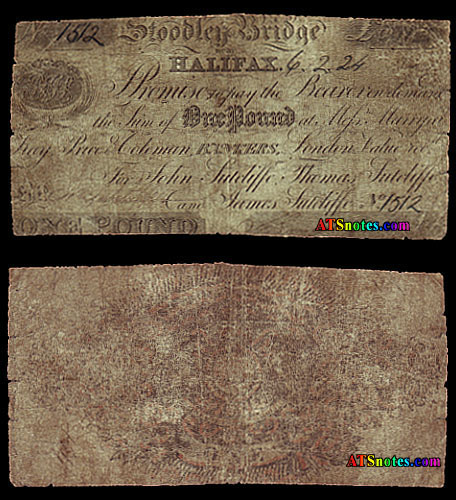 1512 Stoodley Bridge
HALIFAX. 6. 2. 24
I Promise to pay the Bearer on demand
the Sum of One Pound at Mess.
Price & Coleman, BANKERS, London Value rec
For John Sutcliffe Thomas Sutcliffe
and James Sutcliffe No. 1512
ONE POUND
ATSnotes.com
ATSnotes.com